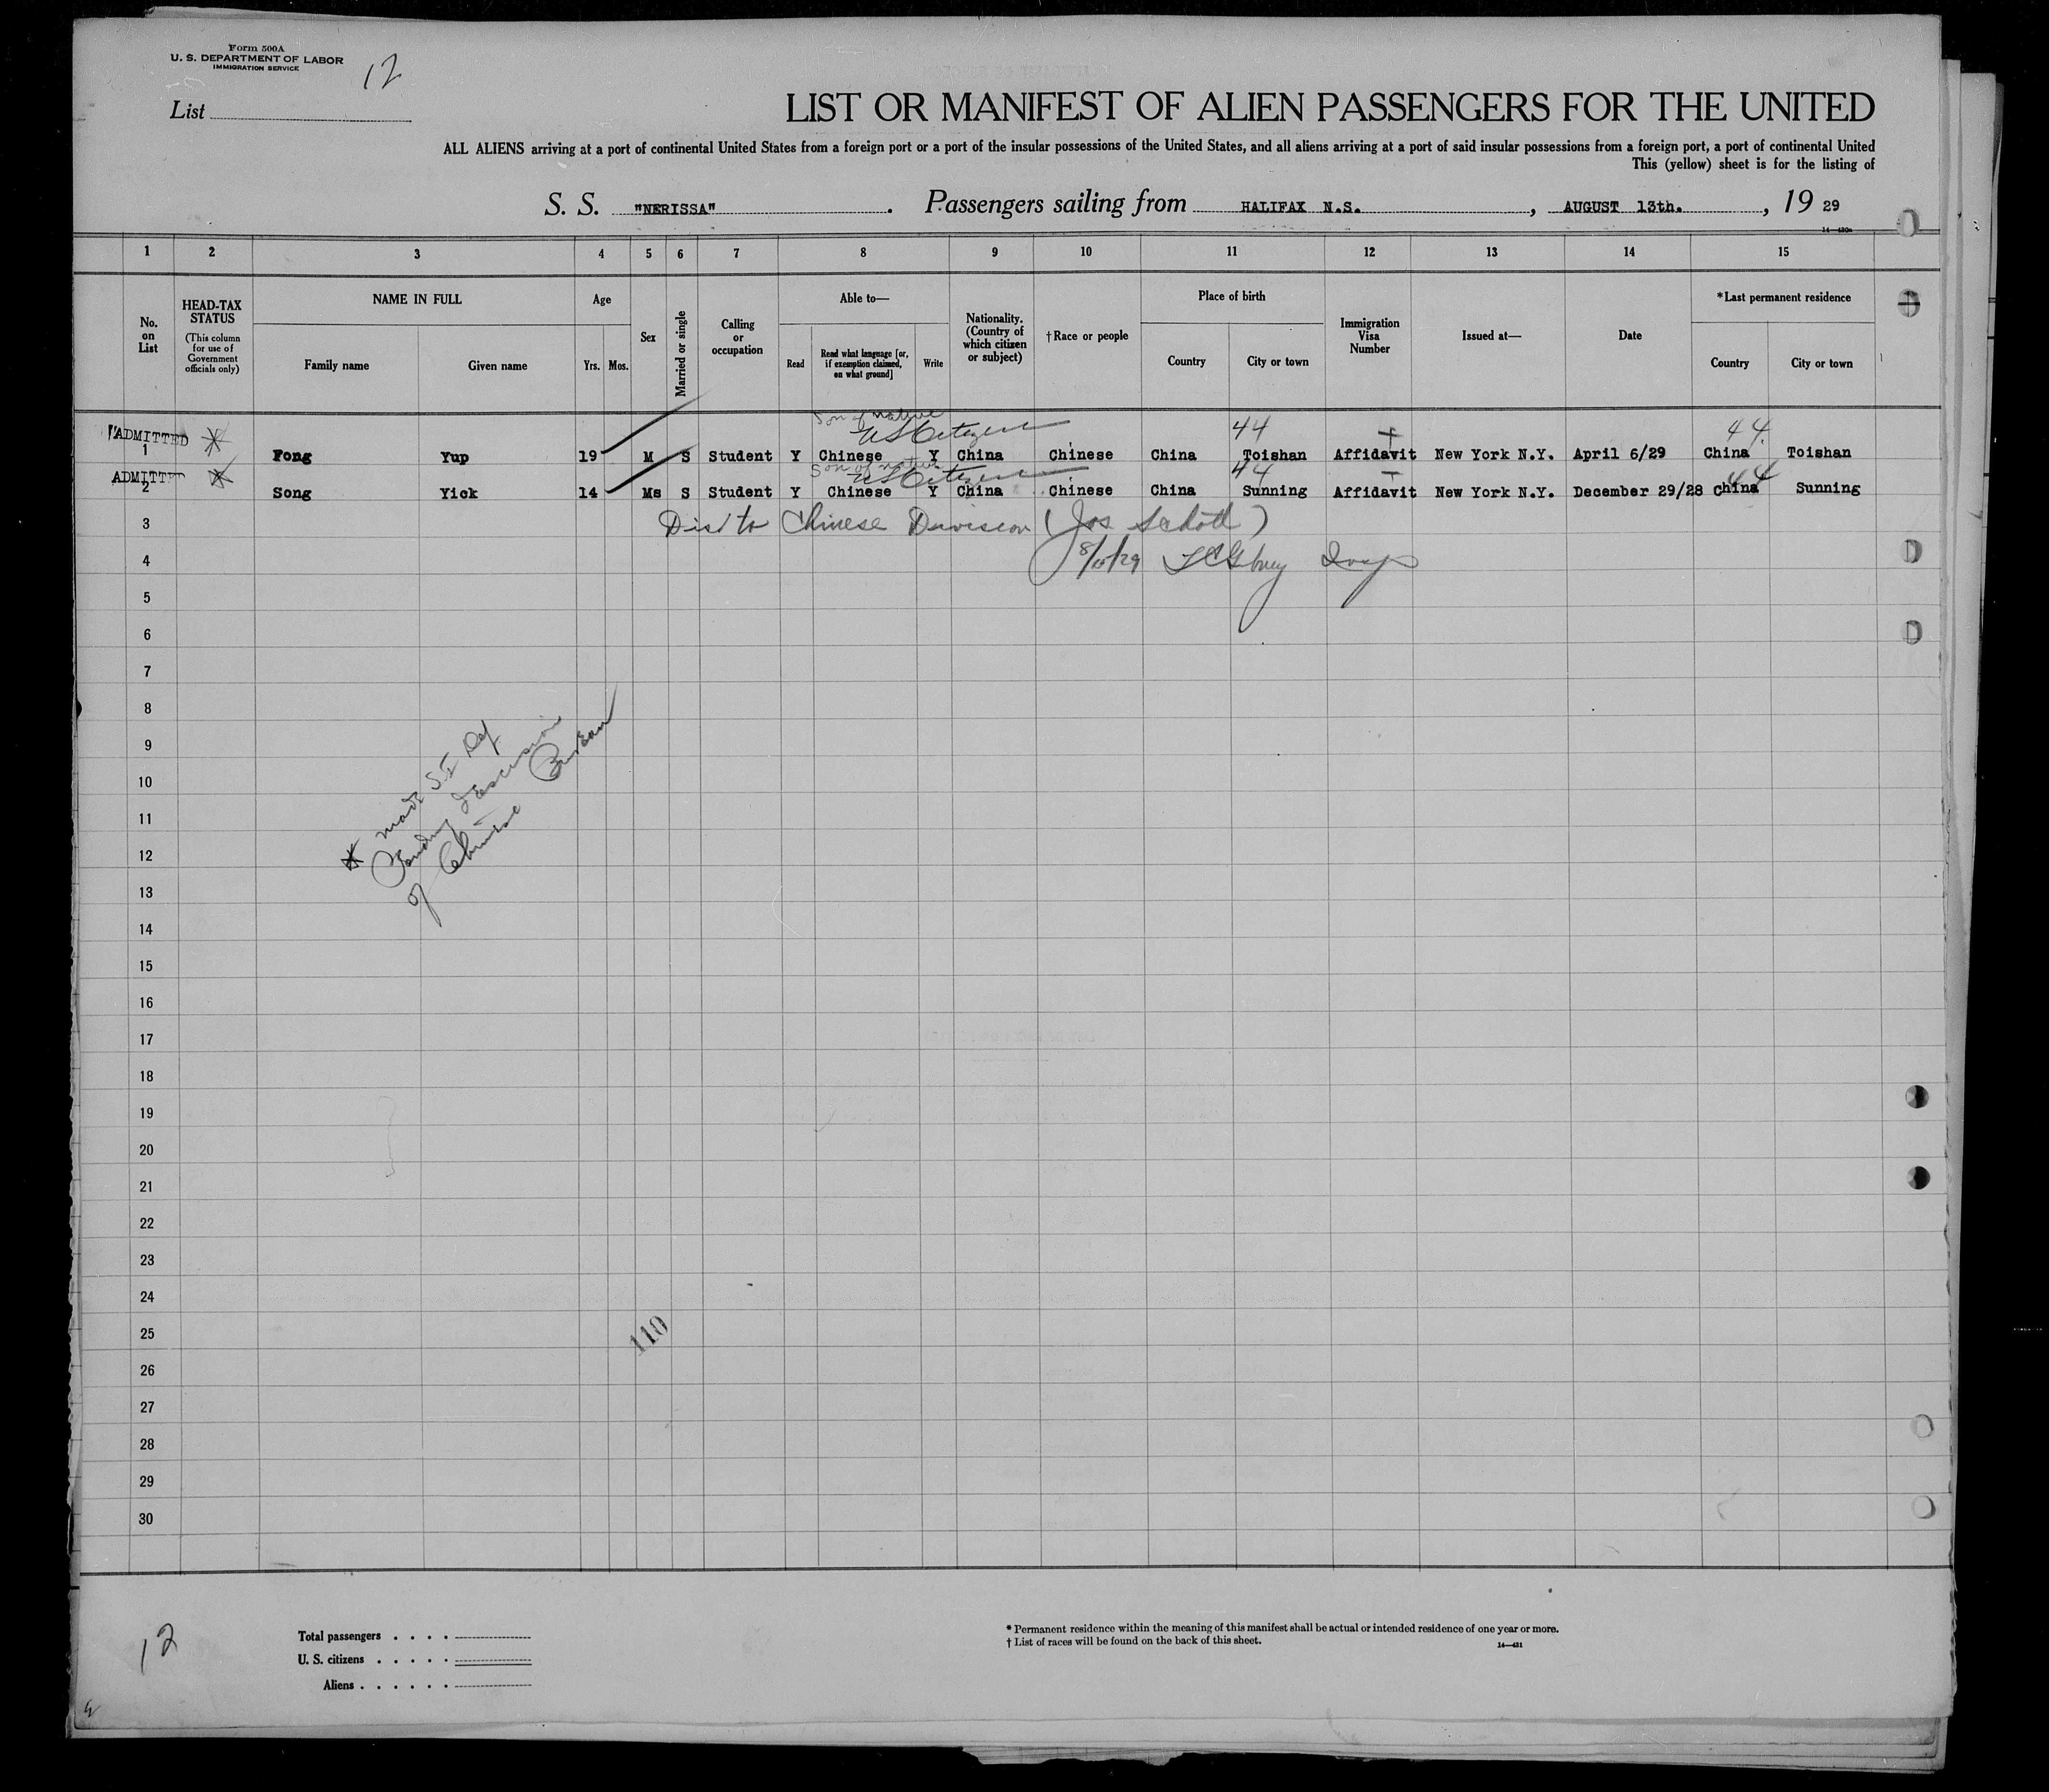 Form 500A
U. S. DEPARTMENT OF LABOR
IMMIGRATION SERVICE
12
List
LIST OR MANIFEST OF ALIEN PASSENGERS FOR THE UNITED
ALL ALIENS arriving at a port of continental United States from a foreign port or a port of the insular possessions of the United States, and all aliens arriving at a port of said insular possessions from a foreign port, a port of continental United
This (yellow) sheet is for the listing of
S. S. "NERISSA". Passengers sailing from HALIFAX N.S., AUGUST 13th., 19 29
1 2 3 4 5 6 7 8 9 10 11 12 13 14 15
No. on List
HEAD-TAX STATUS
(This column for use of Government officials only)
NAME IN FULL
Family name Given name
Age
Yrs. Mos.
Sex
Married or single
Calling or occupation
Able to—
Read
Read what language [or, if exemption claimed, on what ground]
Write
Nationality. (Country of which citizen or subject)
†Race or people
Place of birth
Country City or town
Immigration Visa Number
Issued at—
Date
*Last permanent residence
Country City or town
Son of native
US Citizen 44 44
ADMITTED 1 Fong Yup 19 M S Student Y Chinese Y China Chinese China Toishan Affidavit New York N.Y. April 6/29 China Toishan
Son of native
US Citizen 44 44
ADMITTED 2 Song Yick 14 Ms S Student Y Chinese Y China Chinese China Sunning Affidavit New York N.Y. December 29/28 China Sunning
3 to Chinese Division (Jos
4 8/15/29
5
6
7
8
9
10
11
12
13
14
15
16
17
18
19
20
21
22
23
24
25
26
27
28
29
30
* made S.I.
Pending
of Chinese Bureau
110
12
Total passengers . . . .
U. S. citizens . . . . .
Aliens . . . . . .
* Permanent residence within the meaning of this manifest shall be actual or intended residence of one year or more.
† List of races will be found on the back of this sheet.
14—431